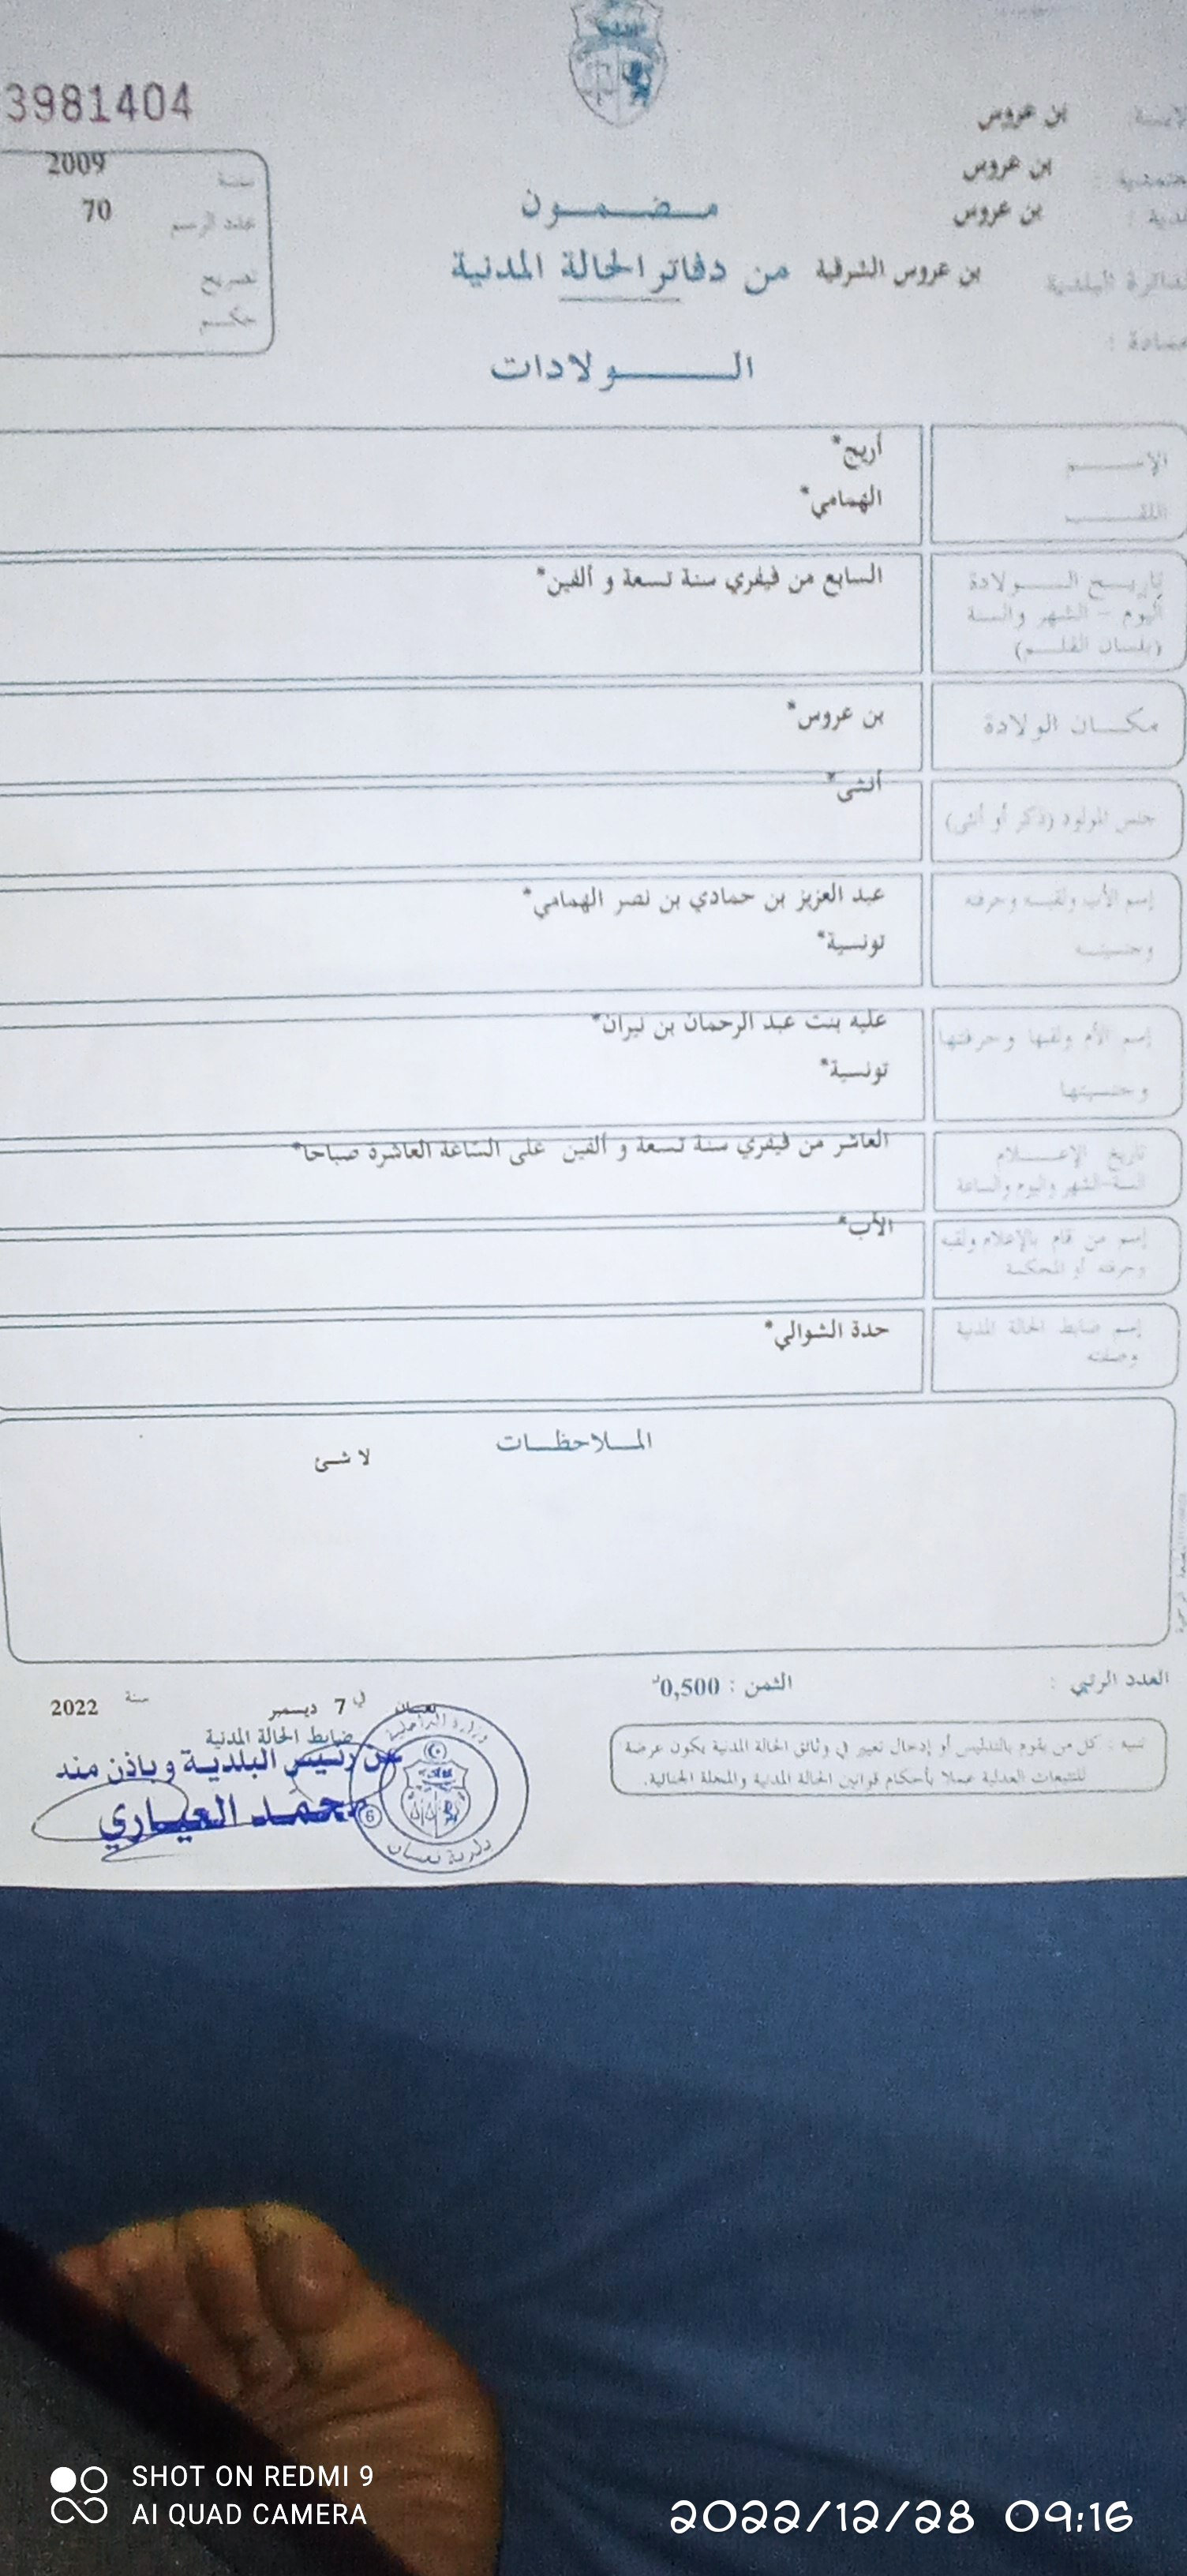 3981404
الولاية بن عروس
معتمدية : بن عروس
بلدية : بن عروس
الدائرة البلدية بن عروس الشرقية
سنة 2009
عدد الرسم 70
تصريح
حكم
مضمون
من دفاتر الحالة المدنية
الولادات
الإسم أريج*
اللقب الهمامي*
تاريخ الولادة السابع من فيفري سنة تسعة و ألفين*
اليوم - الشهر والسنة
(بلسان القلم)
مكان الولادة بن عروس*
جنس المولود (ذكر أو أنثى) أنثى*
إسم الأب ولقبه وحرفته عبد العزيز بن حمادي بن نصر الهمامي*
وجنسيته تونسية*
إسم الأم ولقبها وحرفتها عليه بنت عبد الرحمان بن نيران*
وجنسيتها تونسية*
تاريخ الإعلام العاشر من فيفري سنة تسعة و ألفين على الساعة العاشرة صباحا*
السنة-الشهر واليوم والساعة
إسم من قام بالإعلام ولقبه الأب*
وحرفته أو المحكمة
إسم ضابط الحالة المدنية حدة الشوالي*
وصفته
الملاحظات
لا شئ
العدد الرتبي :
الثمن : 0,500د
نعسان في 7 ديسمبر سنة 2022
ضابط الحالة المدنية
عن رئيس البلدية وباذن منه
محمد العياري
وزارة الداخلية
بلدية نعسان
6
تنبيه : كل من يقوم بالتدليس أو إدخال تغيير في وثائق الحالة المدنية يكون عرضة
للتتبعات العدلية عملا بأحكام قوانين الحالة المدنية والمجلة الجنائية.
SHOT ON REDMI 9
AI QUAD CAMERA
2022/12/28 09:16